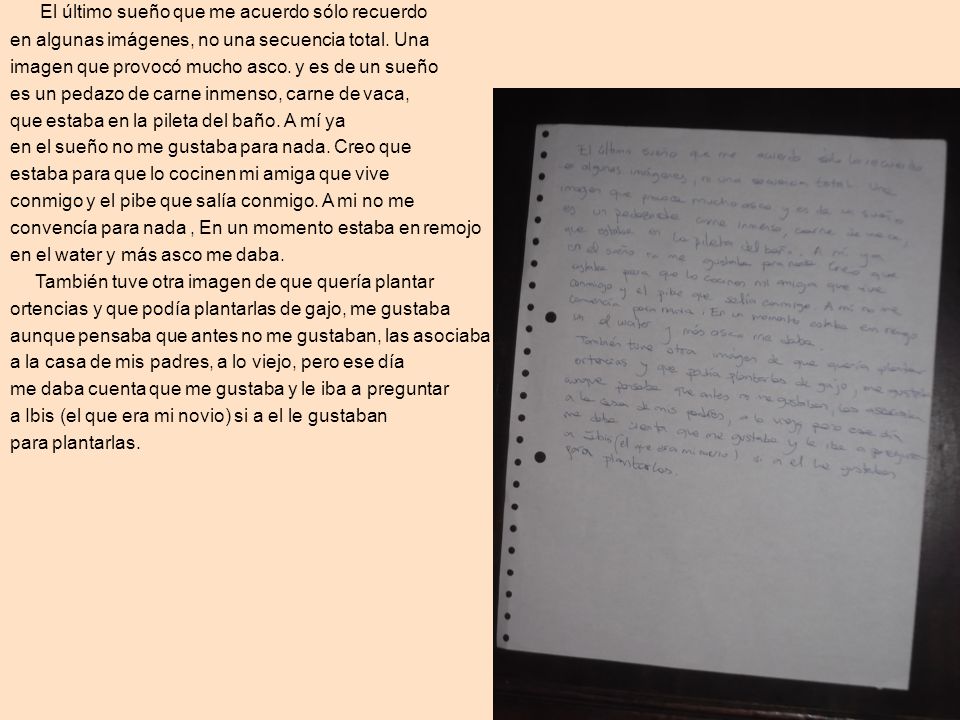 El último sueño que me acuerdo sólo recuerdo
en algunas imágenes, no una secuencia total. Una
imagen que provocó mucho asco. y es de un sueño
es un pedazo de carne inmenso, carne de vaca,
que estaba en la pileta del baño. A mí ya
en el sueño no me gustaba para nada. Creo que
estaba para que lo cocinen mi amiga que vive
conmigo y el pibe que salía conmigo. A mi no me
convencía para nada , En un momento estaba en remojo
en el water y más asco me daba.
También tuve otra imagen de que quería plantar
ortencias y que podía plantarlas de gajo, me gustaba
aunque pensaba que antes no me gustaban, las asociaba
a la casa de mis padres, a lo viejo, pero ese día
me daba cuenta que me gustaba y le iba a preguntar
a Ibis (el que era mi novio) si a el le gustaban
para plantarlas.
El último sueño que me acuerdo sólo lo recuerdo
e algunas imágenes, no una secuencia total. Una
imagen que provoca mucho asco y es de un sueño
es un pedazo de carne inmenso, carne de vaca,
que estaba en la pileta del baño. A mí ya
en el sueño no me gustaba para nada. Creo que
estaba para que lo cocinen mi amiga que vive
conmigo y el pibe que salía conmigo. A mi no me
convencía para nada. En un momento estaba en remojo
en el water y más asco me daba.
También tuve otra imágen de que quería plantar
ortencias y que podía plantarlas de gajo, me gustaba
aunque pensaba que antes no me gustaban, las asociaba
a la casa de mis padres, a lo viejo pero ese día
me daba cuenta que me gustaba y le iba a preguntar
a Ibis (el que era mi novio) si a el le gustaban
para plantarlas.